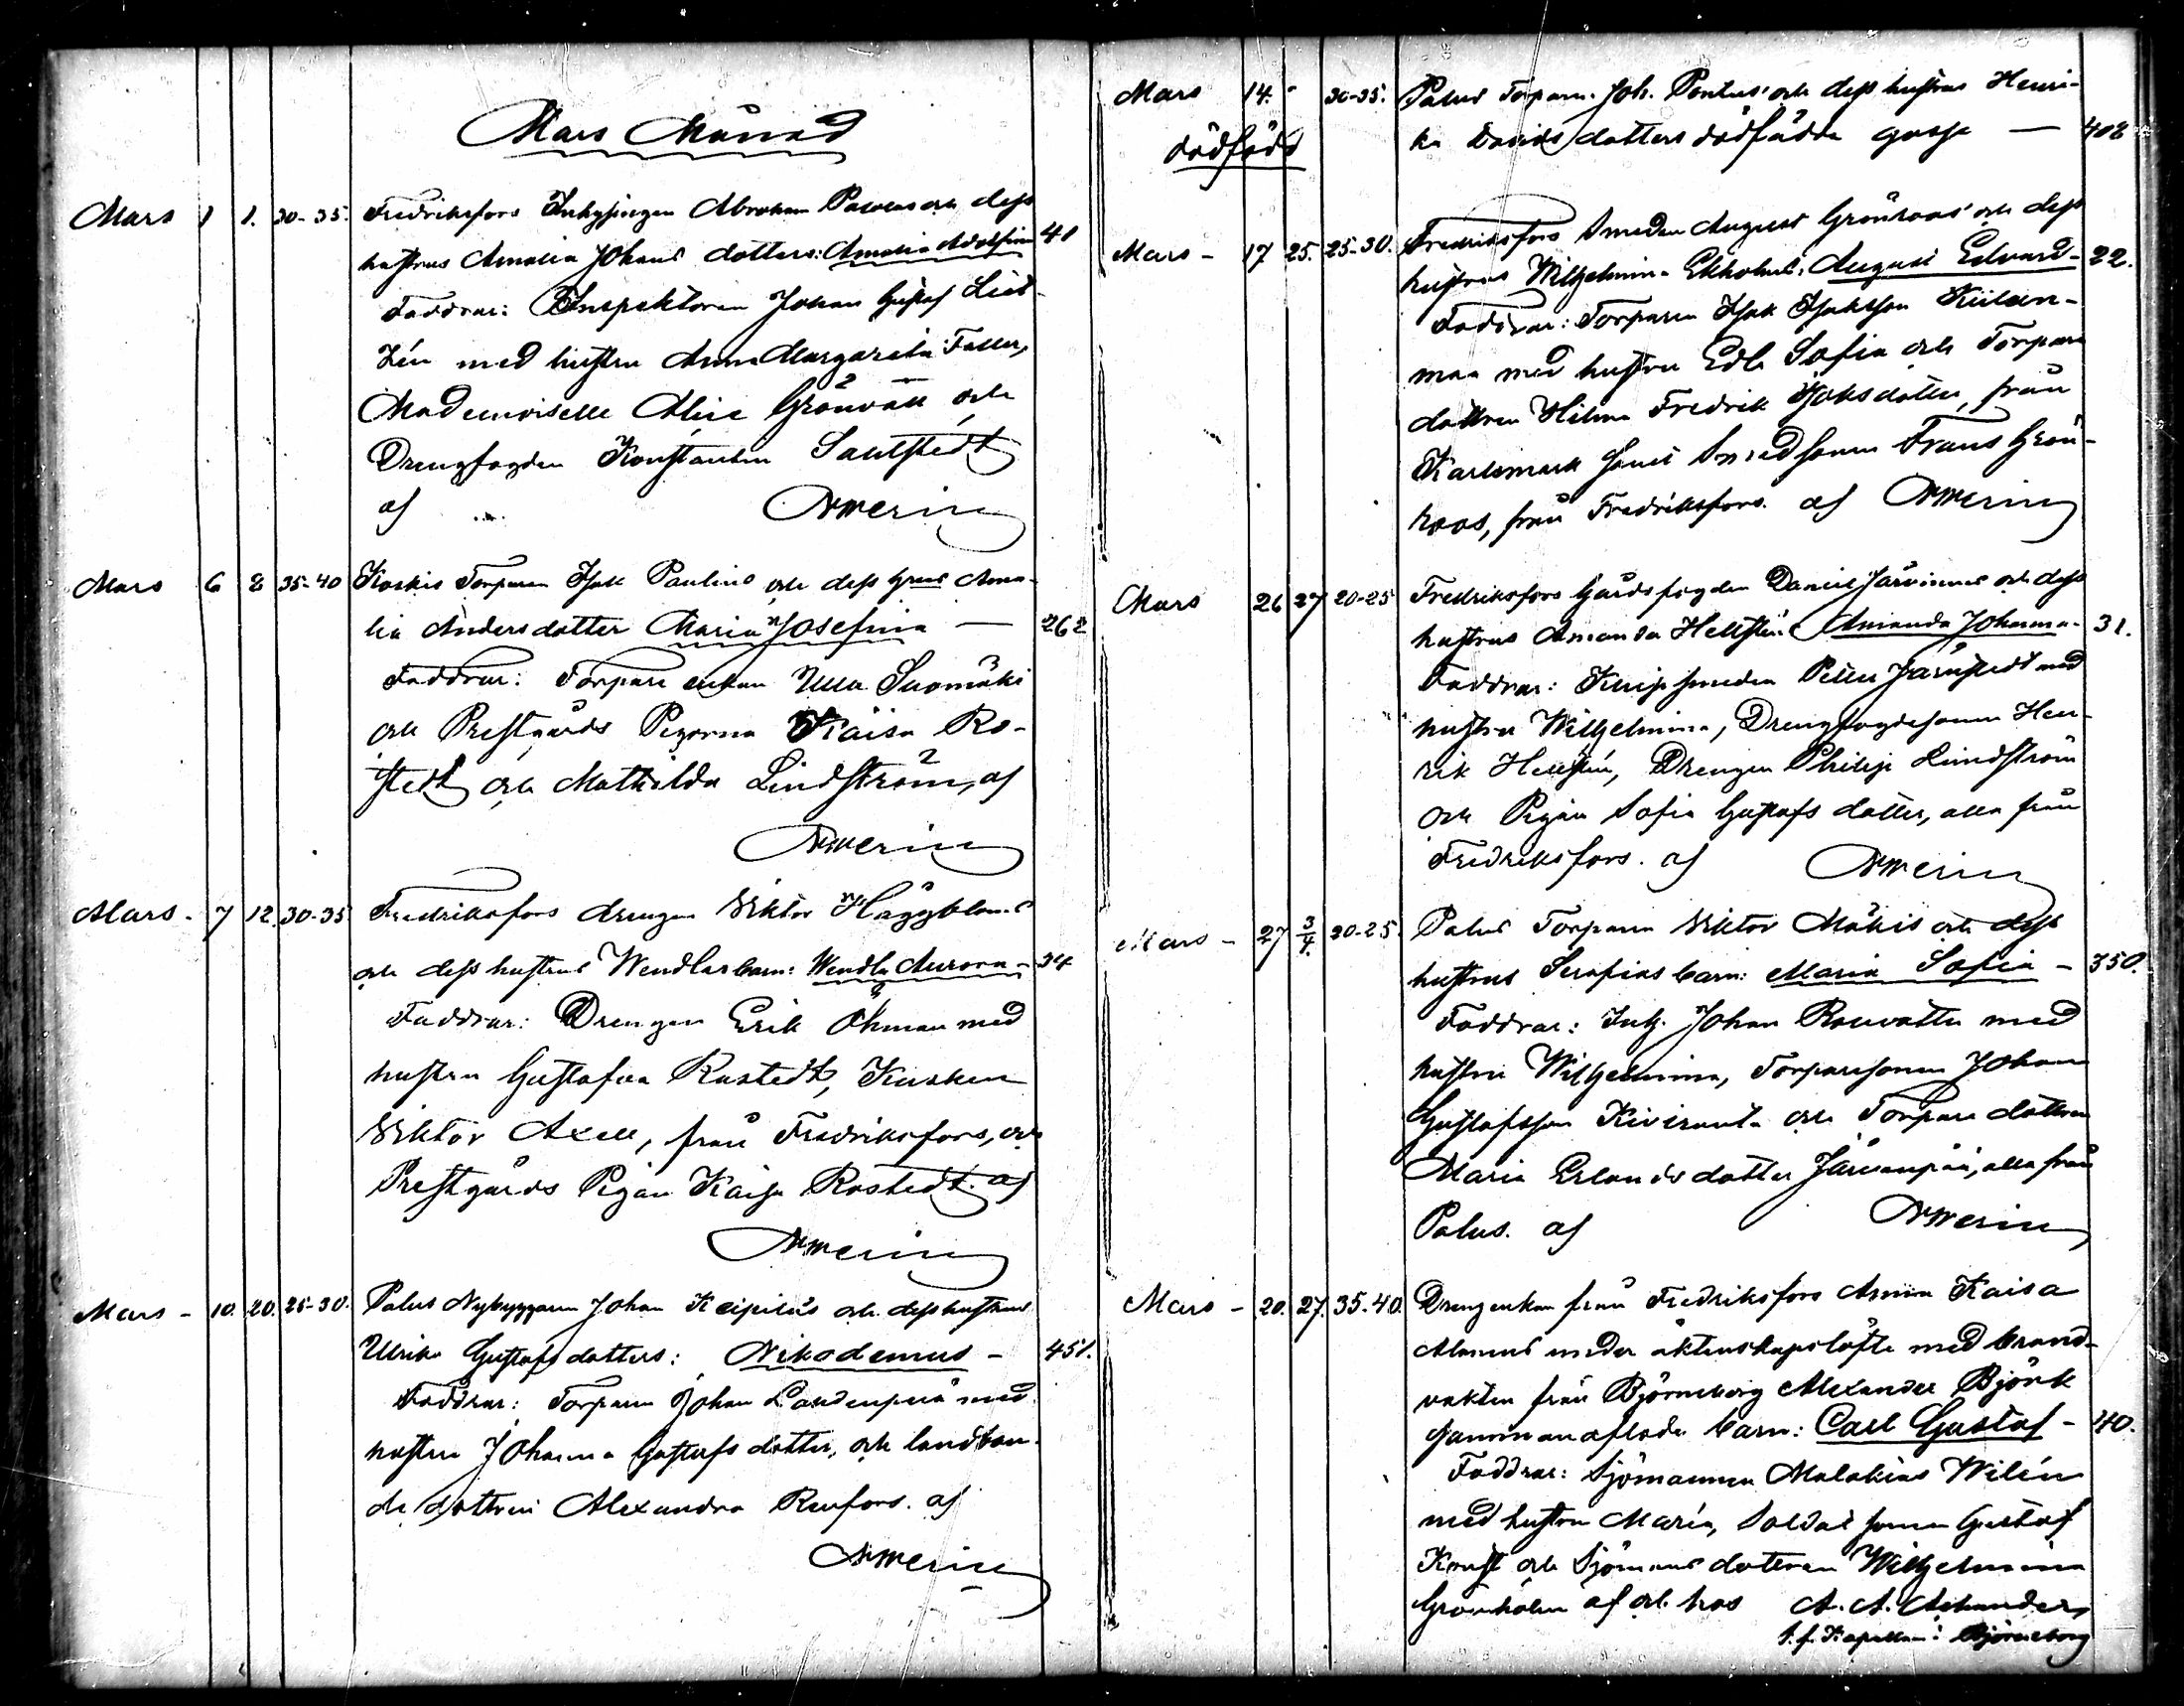 Mars Månad
Mars 1 1. 30-35. Fredriksfors Abraham och dess
hustrus Amalia Johans dotters: Amalia Adolfina 41
Faddrar: Inspektoren Johan Gustaf Lind-
zén med hustru Anna Margareta
Mademoiselle Alice Grönvall och
Drengfogden Konstantin Sahlstedt
af
Mars 6 8 35-40 Koskis Torparen Isak Paulins och dess hustrus Ama-
lia Anders dotter Maria Josefina — 262
Faddrar: Torpare enkan Ulla Suomäki
och Prestgårds Pigorna Kaisa Ro-
stedt och Mathilda Lindström, af
Mars - 7 12. 30-35 Fredriksfors drengen Viktor Häggbloms
och dess hustrus Wendlas barn: Wendla Aurora - 34
Faddrar: Drengen Erik Öhman med
hustru Gustafva Rostedt, Kusken
Viktor Axell, från Fredriksfors, och
Prestgårds Pigan Kaisa Rostedt. af
Mars - 10. 20. 25-30. Palus Nybyggaren Johan Keipilä's och dess hustrus
Ulrika Gustafs dotters: Nikodemus - 451.
Faddrar: Torparen Johan med
hustru Johanna Gustafs dotter, och landbon-
de dottren Alexandra Renfors. af
Mars 14. - 30-35. Palus Torparn. Joh. Pontus' och dess hustrus Henri-
dödfödd ka Davids dotters dödfödda gosse — 408
Mars - 17 25. 25-30. Fredriksfors Smeden August Grönroos' och dess
hustrus Wilhelmina Ekholms, August Edvard - 22.
Faddrar: Torparen Isak Isaksson Kiilan-
maa med hustru Edla Sofia och Torpare
dottren Hilma Fredrik från
Karlsmark samt Smedsonen Frans Grön-
roos, från Fredriksfors. af
Mars 26 27 20-25 Fredriksfors Gårdsfogden Daniel Järvinens och dess
hustrus Amanda Hellsténs Amanda Johanna - 31.
Faddrar: Knipsmeden Petter Järnstedt med
hustru Wilhelmina, Drengfogdesonen Hen-
rik Hellstén, Drengen Philip Lindström
och Pigan Sofia Gustafs dotter, alla från
Fredriksfors. af
Mars - 27 3/4. 20-25. Palus Torparen Viktor Mäkis och dess
hustrus Serafinas barn: Maria Sofia - 350.
Faddrar: Inh. Johan Rouvattu med
hustru Wilhelmina, Torparesonen Johan
Gustafsson Kiviranta och Torpare dottren
Maria Erlands dotter alla från
Palus. af
Mars - 20. 27. 35-40. Drengenkan från Fredriksfors Anna Kaisa
under äktenskapslöfte med brand-
vakten från Björneborg Alexander Björk
sammanaflade barn: Carl Gustaf - 40.
Faddrar: Sjömannen Malakias Wilén
med hustru Maria, Soldat sonen Gustaf
Konst och Sjömans dottren Wilhelmina
Grönholm af och hos A. A.
Björneborg